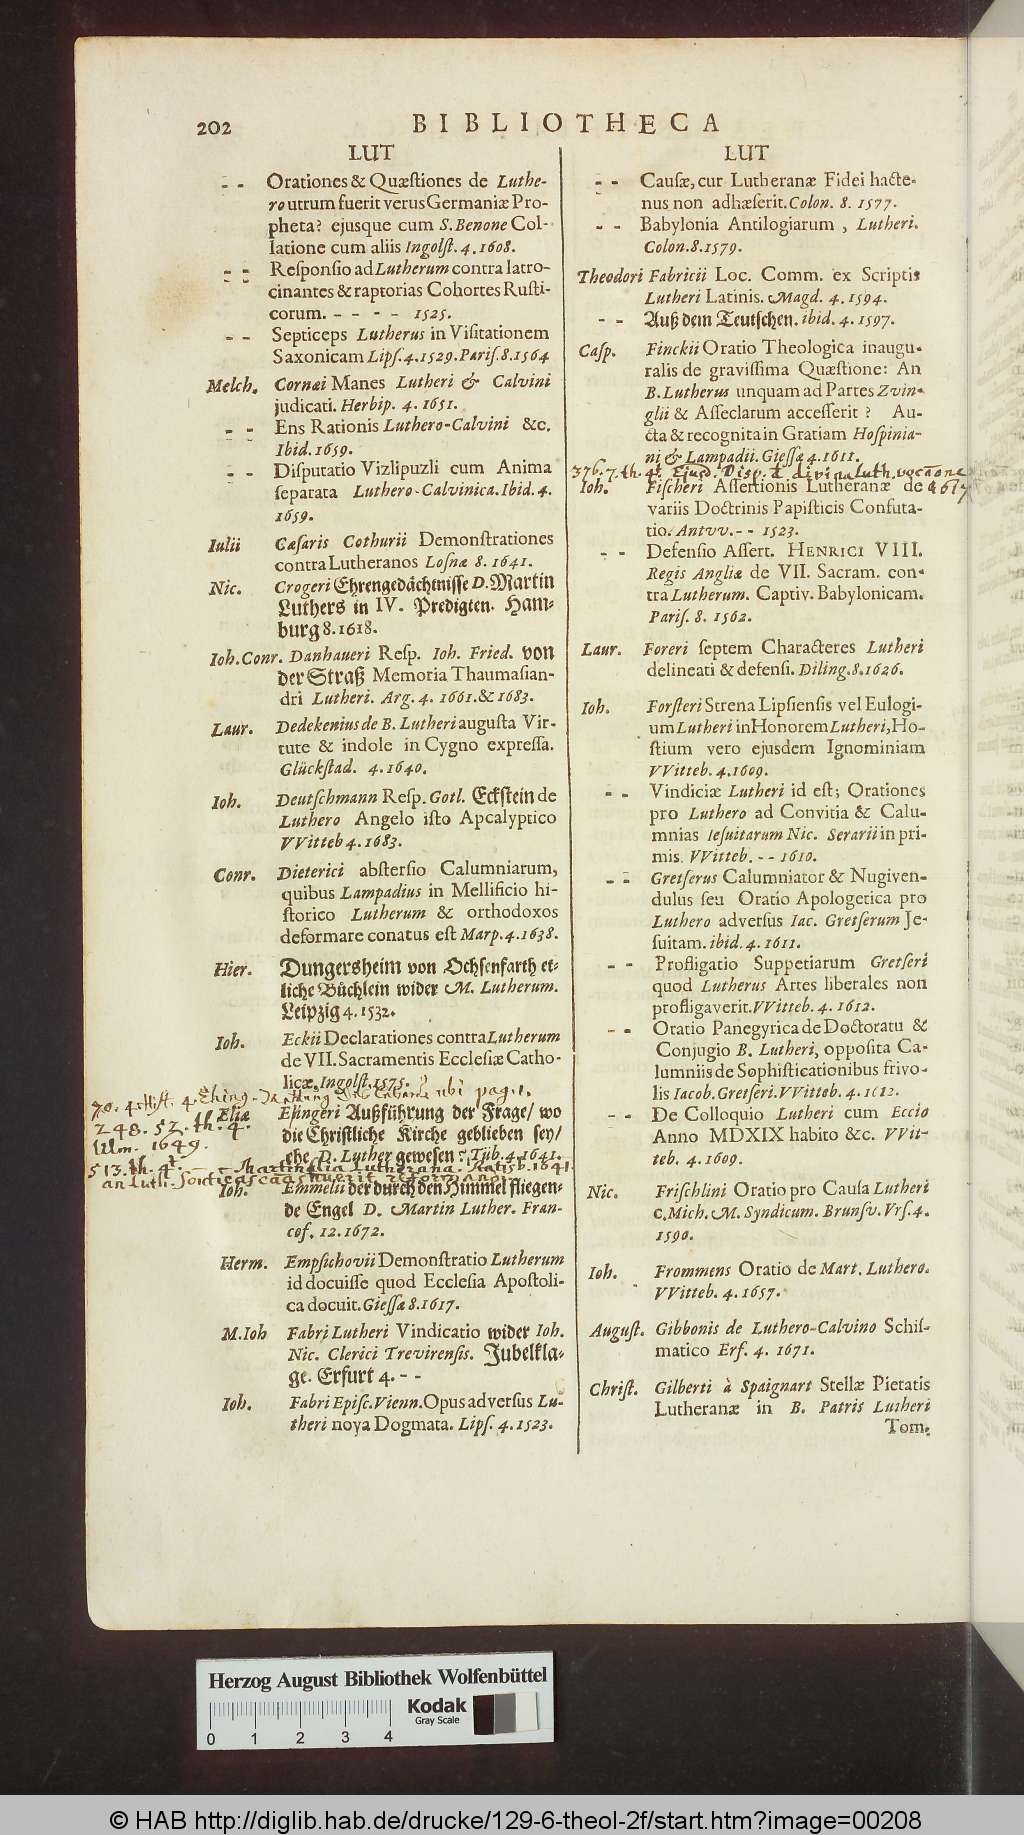 202
BIBLIOTHECA
LUT
- - Orationes & Quæstiones de Luthe-
ro utrum fuerit verus Germaniæ Pro-
pheta? ejusque cum S. Benone Col-
latione cum aliis Ingolst. 4. 1608.
- - Responsio ad Lutherum contra latro-
cinantes & raptorias Cohortes Rusti-
corum. - - - - 1525.
- - Septiceps Lutherus in Visitationem
Saxonicam Lips. 4. 1529. Paris. 8. 1564
Melch. Cornæi Manes Lutheri & Calvini
judicati. Herbip. 4. 1651.
- - Ens Rationis Luthero-Calvini &c.
Ibid. 1659.
- - Disputatio Vizlipuzli cum Anima
separata Luthero-Calvinica. Ibid. 4.
1659.
Iulii Cæsaris Cothurii Demonstrationes
contra Lutheranos Losnæ 8. 1641.
Nic. Crogeri Ehrengedächtnisse D. Martin
Luthers in IV. Predigten. Ham-
burg 8. 1618.
Ioh. Conr. Danhaueri Resp. Ioh. Fried. von
der Straß Memoria Thaumasian-
dri Lutheri. Arg. 4. 1661. & 1683.
Laur. Dedekenius de B. Lutheri augusta Vir-
tute & indole in Cygno expressa.
Glückstad. 4. 1640.
Ioh. Deutschmann Resp. Gotl. Eckstein de
Luthero Angelo isto Apcalyptico
VVitteb 4. 1683.
Conr. Dieterici abstersio Calumniarum,
quibus Lampadius in Mellificio hi-
storico Lutherum & orthodoxos
deformare conatus est Marp. 4. 1638.
Hier. Dungersheim von Ochsenfarth et-
liche Büchlein wider M. Lutherum.
Leipzig 4. 1532.
Ioh. Eckii Declarationes contra Lutherum
de VII. Sacramentis Ecclesiæ Catho-
licæ. Ingolst. 1575.
ubi pag. 1.
Eliæ Ehingeri Außführung der Frage/ wo
248. 52. th. 4.
die Christliche Kirche geblieben sey/
Ulm. 1649.
ehe D. Luther gewesen? Tüb. 4. 1641.
513. th. 4t. - - Martinalia Lutherana. Ratisb. 1641.
an Luth.
Ioh. Emmelii der durch den Himmel fliegen-
de Engel D. Martin Luther. Fran-
cof. 12. 1672.
Herm. Empsychovii Demonstratio Lutherum
id docuisse quod Ecclesia Apostoli-
ca docuit. Giessæ 8. 1617.
M. Ioh Fabri Lutheri Vindicatio wider Ioh.
Nic. Clerici Trevirensis. Jubelkla-
ge. Erfurt 4. - -
Ioh. Fabri Episc. Vienn. Opus adversus Lu-
theri nova Dogmata. Lips. 4. 1523.
LUT
- - Causæ, cur Lutheranæ Fidei hacte-
nus non adhæserit. Colon. 8. 1577.
- - Babylonia Antilogiarum, Lutheri.
Colon. 8. 1579.
Theodori Fabricii Loc. Comm. ex Scriptis
Lutheri Latinis. Magd. 4. 1594.
- - Auß dem Teutschen. ibid. 4. 1597.
Casp. Finckii Oratio Theologica inaugu-
ralis de gravissima Quæstione: An
B. Lutherus unquam ad Partes Zvin-
glii & Asseclarum accesserit? Au-
cta & recognita in Gratiam Hospinia-
ni & Lampadii. Giessæ 4. 1611.
376. 7. th. 4t. Ejusd. Disp. d divina Luth. vocaone
Ioh. Fischeri Assertionis Lutheranæ de 1617
variis Doctrinis Papisticis Confuta-
tio. Antvv. - - 1523.
- - Defensio Assert. HENRICI VIII.
Regis Angliæ de VII. Sacram. con-
tra Lutherum. Captiv. Babylonicam.
Paris. 8. 1562.
Laur. Foreri septem Characteres Lutheri
delineati & defensi. Diling. 8. 1626.
Ioh. Forsteri Strena Lipsiensis vel Eulogi-
um Lutheri in Honorem Lutheri, Ho-
stium vero ejusdem Ignominiam
VVitteb. 4. 1609.
- - Vindiciæ Lutheri id est; Orationes
pro Luthero ad Convitia & Calu-
mnias Iesuitarum Nic. Serarii in pri-
mis. VVitteb. - - 1610.
- - Gretserus Calumniator & Nugiven-
dulus seu Oratio Apologetica pro
Luthero adversus Iac. Gretserum Je-
suitam. ibid. 4. 1611.
- - Profligatio Suppetiarum Gretseri
quod Lutherus Artes liberales non
profligaverit. VVitteb. 4. 1612.
- - Oratio Panegyrica de Doctoratu &
Conjugio B. Lutheri, opposita Ca-
lumniis de Sophisticationibus frivo-
lis Iacob. Gretseri. VVitteb. 4. 1612.
- - De Colloquio Lutheri cum Eccio
Anno MDXIX habito &c. VVit-
teb. 4. 1609.
Nic. Frischlini Oratio pro Causa Lutheri
c. Mich. M. Syndicum. Brunsv. Vrs. 4.
1590.
Ioh. Frommens Oratio de Mart. Luthero.
VVitteb. 4. 1657.
August. Gibbonis de Luthero-Calvino Schis-
matico Erf. 4. 1671.
Christ. Gilberti à Spaignart Stellæ Pietatis
Lutheranæ in B. Patris Lutheri
Tom.
Herzog August Bibliothek Wolfenbüttel
Kodak
Gray Scale
0 1 2 3 4
© HAB http://diglib.hab.de/drucke/129-6-theol-2f/start.htm?image=00208